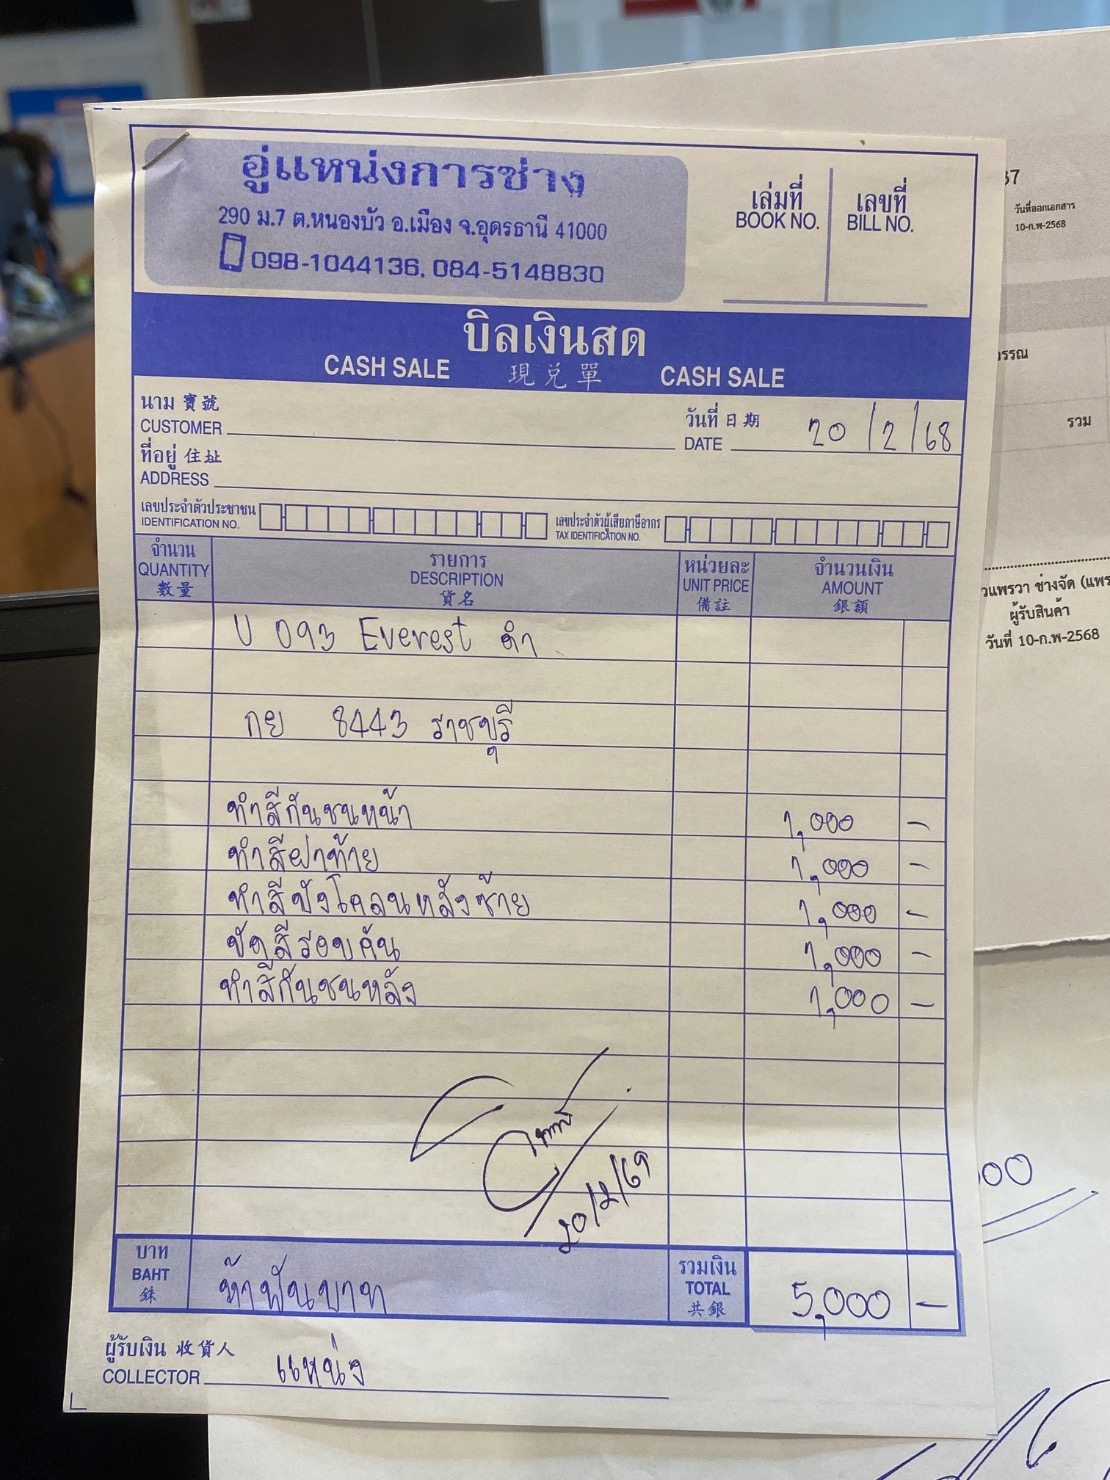 อู่แหน่งการช่าง
290 ม.7 ต.หนองบัว อ.เมือง จ.อุดรธานี 41000
098-1044136, 084-5148830
เล่มที่
BOOK NO.
เลขที่
BILL NO.
บิลเงินสด
CASH SALE 現兑單 CASH SALE
นาม 寶號
CUSTOMER
วันที่ 日期
DATE 20/2/68
ที่อยู่ 住址
ADDRESS
เลขประจำตัวประชาชน
IDENTIFICATION NO.
เลขประจำตัวผู้เสียภาษีอากร
TAX IDENTIFICATION NO.
จำนวน
QUANTITY
數量
รายการ
DESCRIPTION
貨名
หน่วยละ
UNIT PRICE
備註
จำนวนเงิน
AMOUNT
銀額
U 093 Everest ดำ
กย 8443 ราชบุรี
ทำสีกันชนหน้า 1,000 –
ทำสีฝาท้าย 1,000 –
ทำสีบังโคลนหลังซ้าย 1,000 –
ขัดสีรอบคัน 1,000 –
ทำสีกันชนหลัง 1,000 –
20/2/69
บาท
BAHT
銖
ห้าพันบาท
รวมเงิน
TOTAL
共銀
5,000 –
ผู้รับเงิน 收貨人
COLLECTOR แหน่ง
37
วันที่ออกเอกสาร
10-ก.พ-2568
รวม
วแพรวา ช่างจัด (แพร
ผู้รับสินค้า
วันที่ 10-ก.พ-2568
00